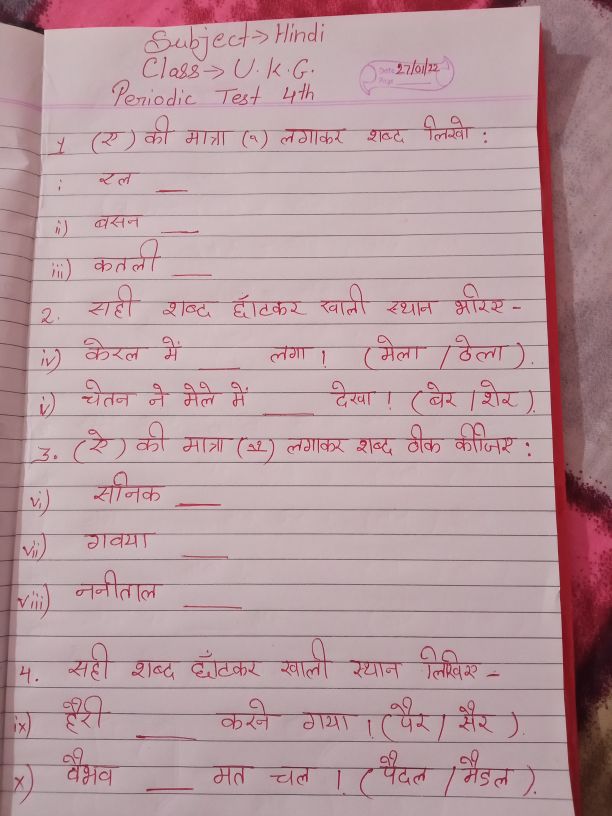 Subject → Hindi
Class → U.K.G.
Date 27/01/22
Page
Periodic Test 4th
1 (ए) की मात्रा (े) लगाकर शब्द लिखो :
i रल ___
ii) बसन ___
iii) कतली ___
2. सही शब्द छाँटकर खाली स्थान भरिए -
iv) केरल में ___ लगा । (मेला / ठेला).
v) चेतन ने मेले में ___ देखा ! (बेर / शेर).
3. (ऐ) की मात्रा (ै) लगाकर शब्द ठीक कीजिए :
vi) सनिक ___
vii) गवया ___
viii) ननीताल ___
4. सही शब्द छाँटकर खाली स्थान लिखिए -
ix) हैरी ___ करने गया । (पैर / सैर ).
x) वैभव ___ मत चल ! (पैदल / मैडल ).